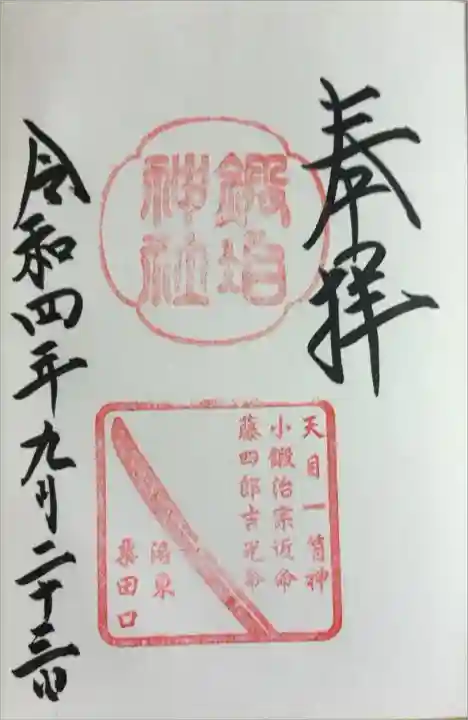 奉拝
鍛冶
神社
天目一箇神
小鍛治宗近命
藤四郎吉光命
洛東
粟田口
令和四年九月二十三日